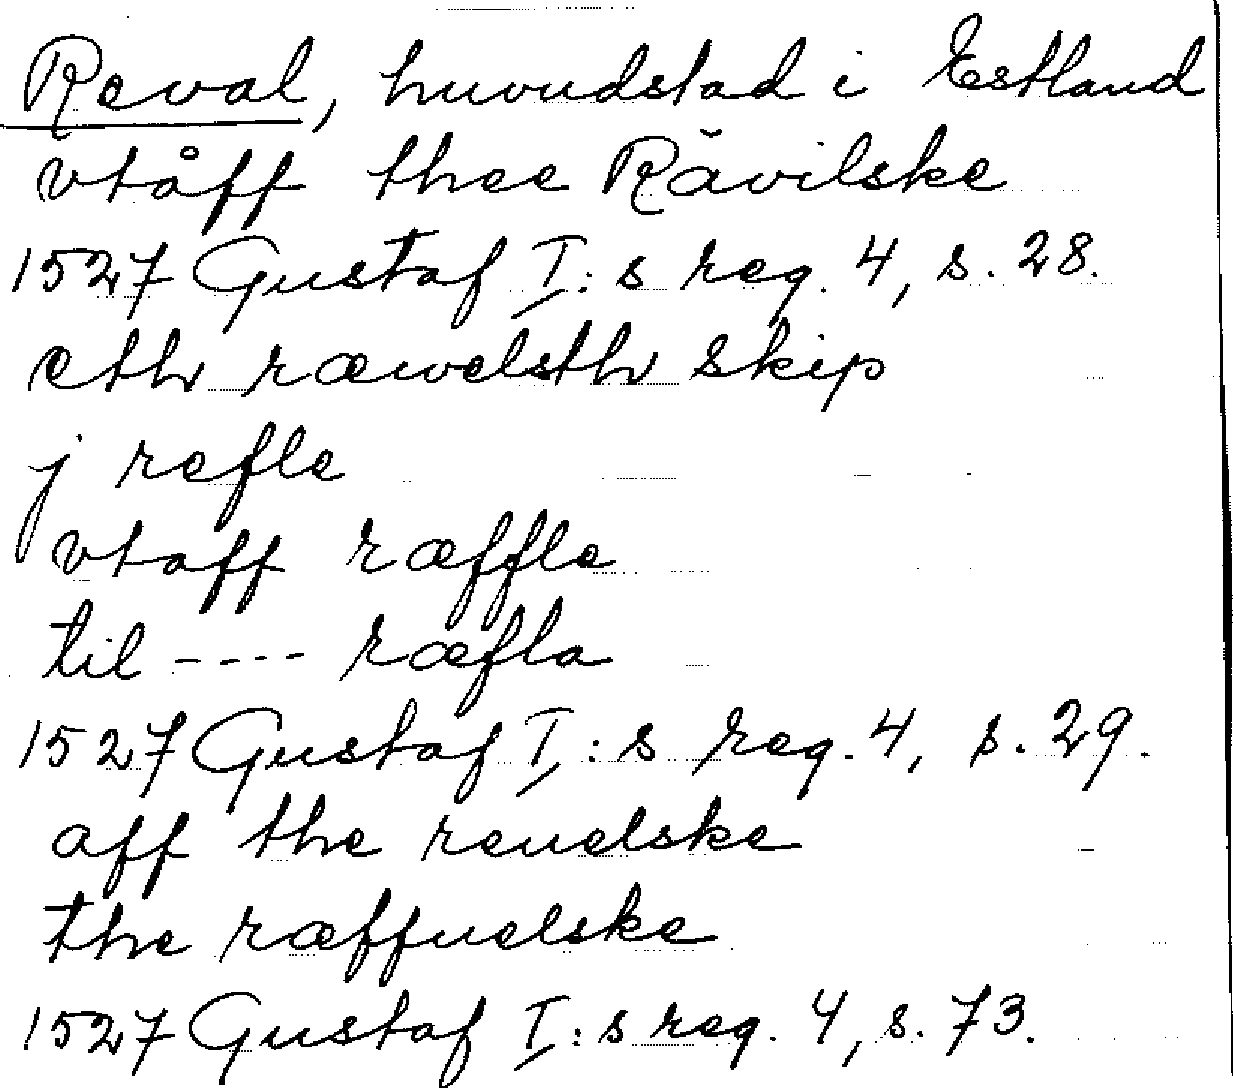 Reval, huvudstad i Estland
vtåff thee Răvilske
1527 Gustaf I:s reg. 4, s. 28.
eth ræwelsth skip
j refle
vtaff ræffle
til ---- ræfla
1527 Gustaf I:s reg. 4, s. 29.
aff the reuelske
the ræffuelske
1527 Gustaf I:s reg. 4, s. 73.